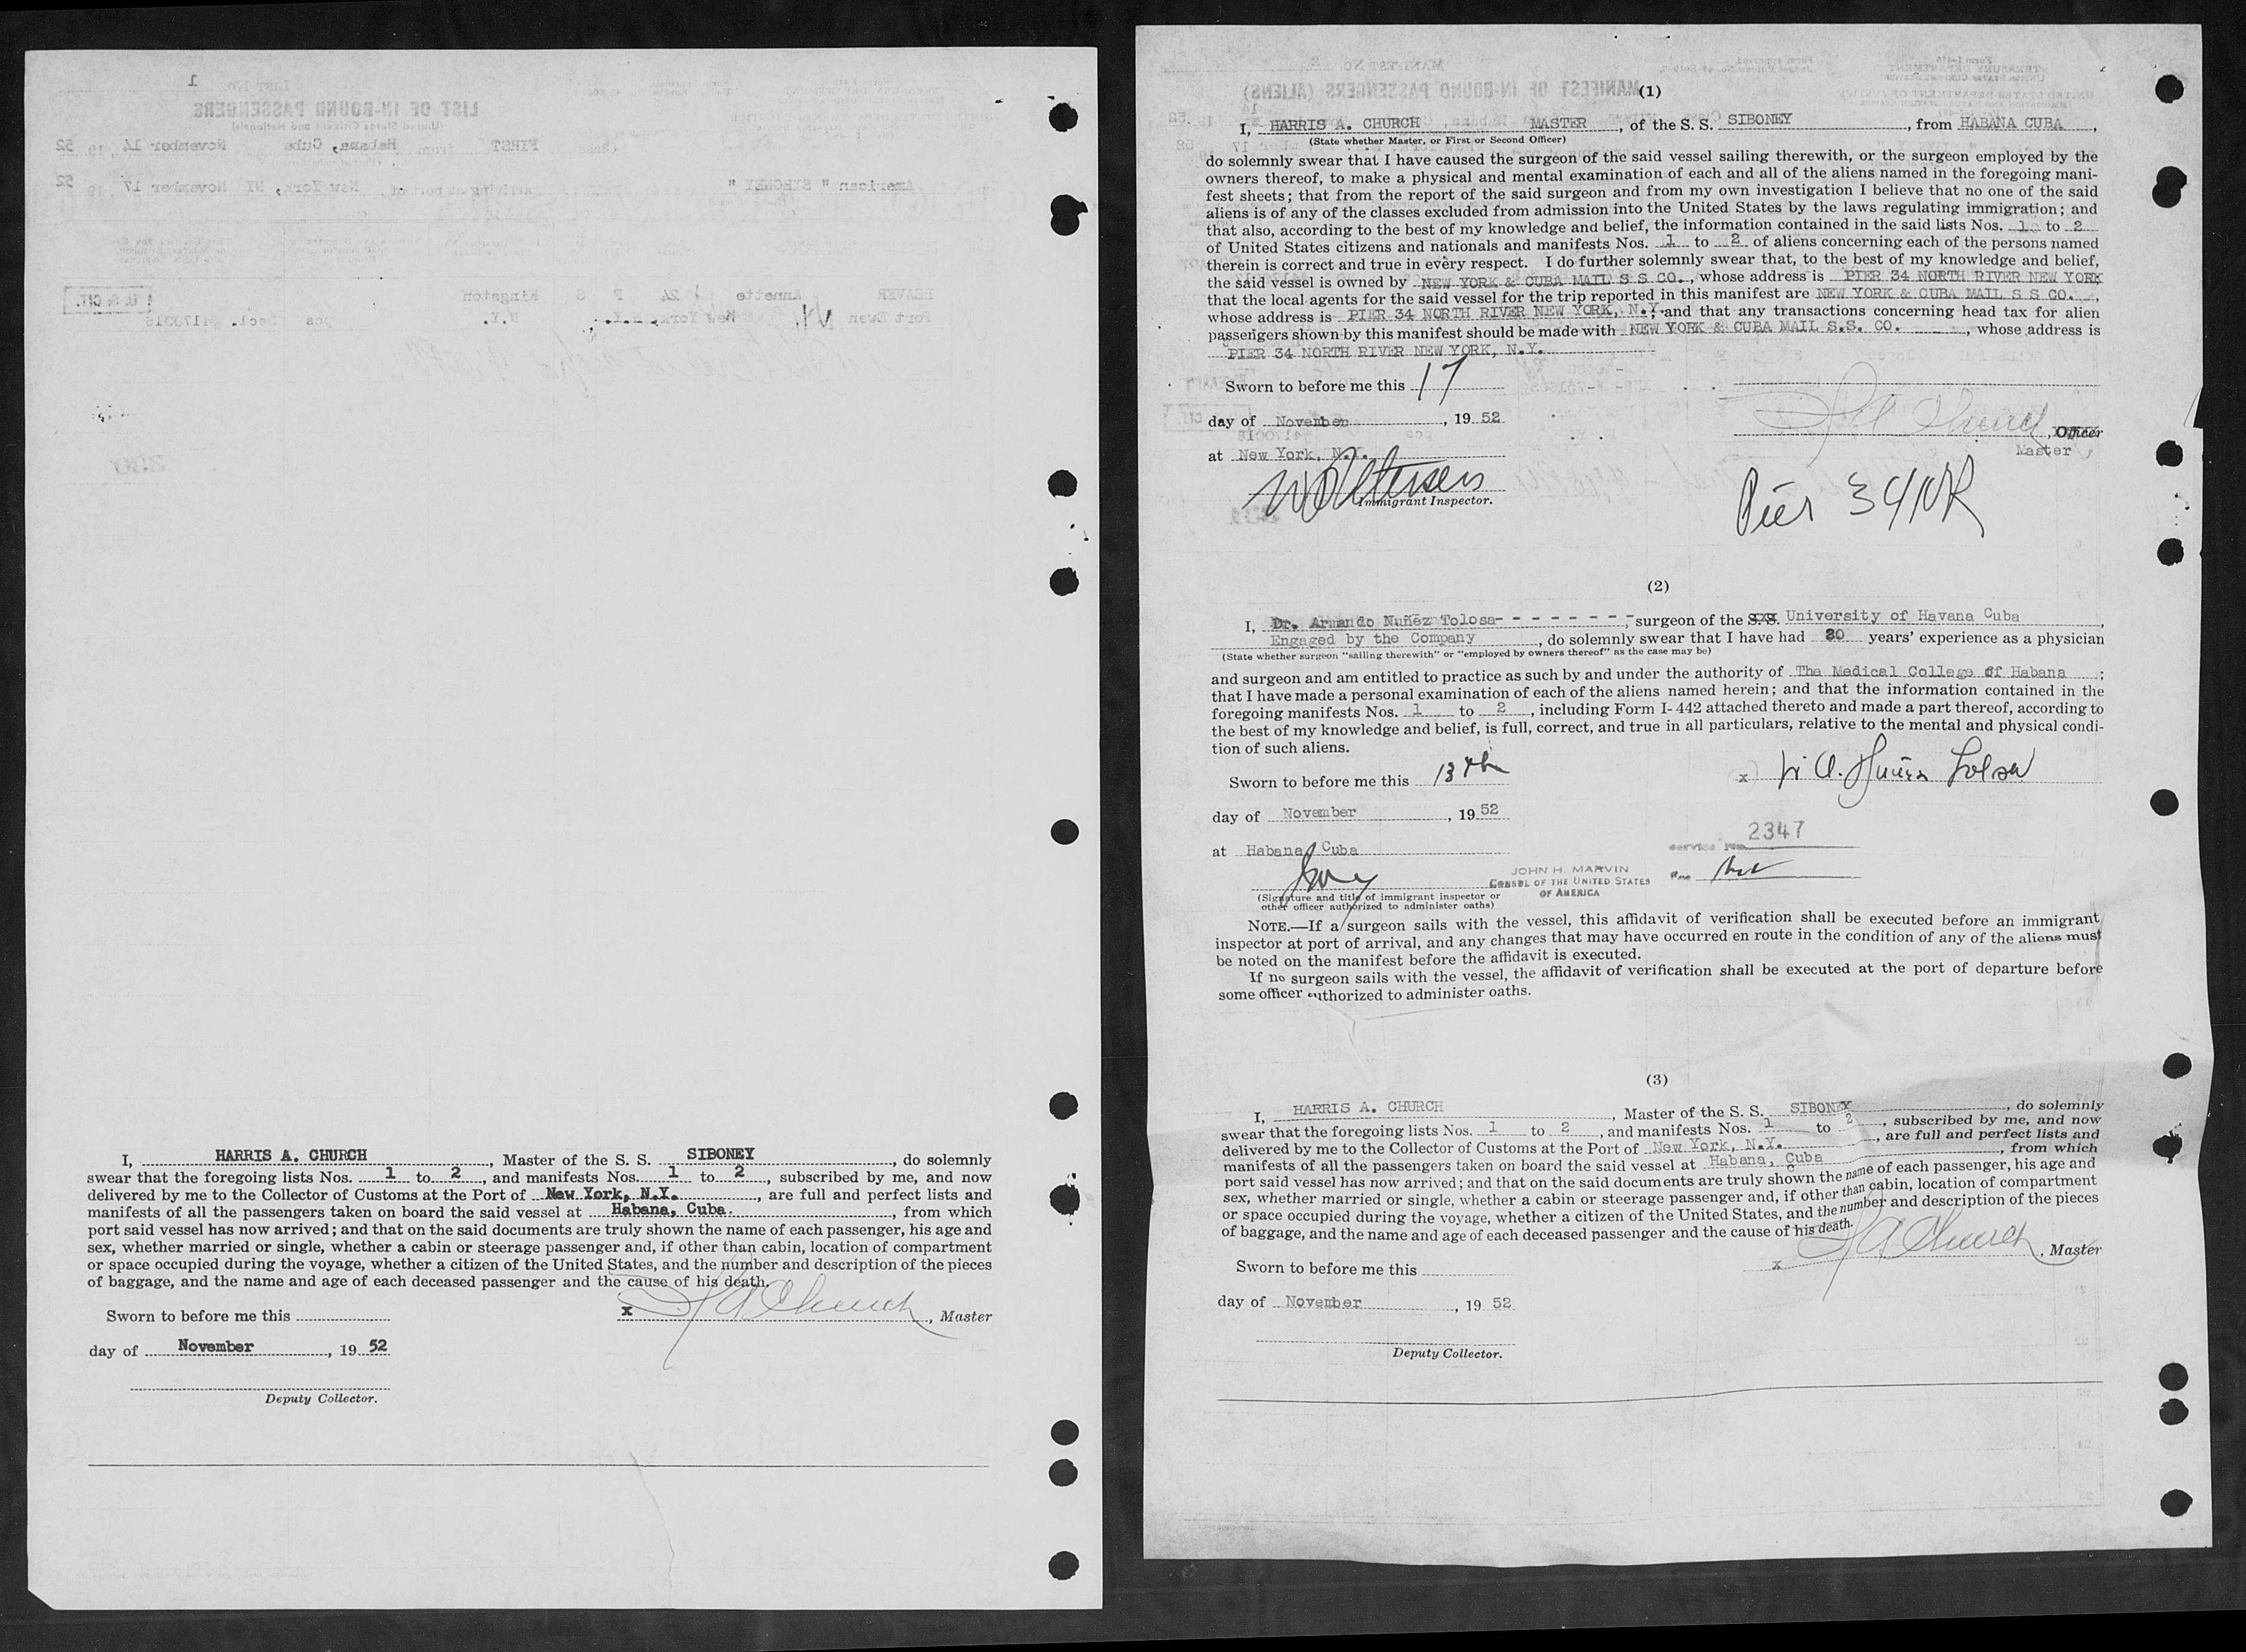 I, HARRIS A. CHURCH, Master of the S. S. SIBONEY, do solemnly
swear that the foregoing lists Nos. 1 to 2, and manifests Nos. 1 to 2, subscribed by me, and now
delivered by me to the Collector of Customs at the Port of New York, N.Y., are full and perfect lists and
manifests of all the passengers taken on board the said vessel at Habana, Cuba., from which
port said vessel has now arrived; and that on the said documents are truly shown the name of each passenger, his age and
sex, whether married or single, whether a cabin or steerage passenger and, if other than cabin, location of compartment
or space occupied during the voyage, whether a citizen of the United States, and the number and description of the pieces
of baggage, and the name and age of each deceased passenger and the cause of his death.
Sworn to before me this
x H A Church, Master
day of November, 19 52
Deputy Collector.
(1)
I, HARRIS A. CHURCH MASTER, of the S. S. SIBONEY, from HABANA CUBA,
(State whether Master, or First or Second Officer)
do solemnly swear that I have caused the surgeon of the said vessel sailing therewith, or the surgeon employed by the
owners thereof, to make a physical and mental examination of each and all of the aliens named in the foregoing mani-
fest sheets; that from the report of the said surgeon and from my own investigation I believe that no one of the said
aliens is of any of the classes excluded from admission into the United States by the laws regulating immigration; and
that also, according to the best of my knowledge and belief, the information contained in the said lists Nos. 1 to 2
of United States citizens and nationals and manifests Nos. 1 to 2 of aliens concerning each of the persons named
therein is correct and true in every respect. I do further solemnly swear that, to the best of my knowledge and belief,
the said vessel is owned by NEW YORK & CUBA MAIL S S CO., whose address is PIER 34 NORTH RIVER NEW YORK
that the local agents for the said vessel for the trip reported in this manifest are NEW YORK & CUBA MAIL S S CO.,
whose address is PIER 34 NORTH RIVER NEW YORK, N.Y.; and that any transactions concerning head tax for alien
passengers shown by this manifest should be made with NEW YORK & CUBA MAIL S.S. CO., whose address is
PIER 34 NORTH RIVER NEW YORK, N.Y.
Sworn to before me this 17
day of November, 19 52
H A Church, Officer
Master
at New York, N.Y.
Immigrant Inspector.
Pier 34 NR
(2)
I, Dr. Armando Nuñez Tolosa- - - - - - - - -, surgeon of the S.S. University of Havana Cuba,
Engaged by the Company, do solemnly swear that I have had 20 years' experience as a physician
(State whether surgeon "sailing therewith" or "employed by owners thereof" as the case may be)
and surgeon and am entitled to practice as such by and under the authority of The Medical College of Habana;
that I have made a personal examination of each of the aliens named herein; and that the information contained in the
foregoing manifests Nos. 1 to 2, including Form I-442 attached thereto and made a part thereof, according to
the best of my knowledge and belief, is full, correct, and true in all particulars, relative to the mental and physical condi-
tion of such aliens.
Sworn to before me this 13th
x Dr A. Nuñez Tolosa
day of November, 19 52
2347
service No.
at Habana, Cuba
JOHN H. MARVIN
CONSUL OF THE UNITED STATES
OF AMERICA
(Signature and title of immigrant inspector or
other officer authorized to administer oaths)
NOTE.—If a surgeon sails with the vessel, this affidavit of verification shall be executed before an immigrant
inspector at port of arrival, and any changes that may have occurred en route in the condition of any of the aliens must
be noted on the manifest before the affidavit is executed.
If no surgeon sails with the vessel, the affidavit of verification shall be executed at the port of departure before
some officer authorized to administer oaths.
(3)
I, HARRIS A. CHURCH, Master of the S. S. SIBONEY, do solemnly
swear that the foregoing lists Nos. 1 to 2, and manifests Nos. 1 to 2, subscribed by me, and now
delivered by me to the Collector of Customs at the Port of New York, N.Y., are full and perfect lists and
manifests of all the passengers taken on board the said vessel at Habana, Cuba, from which
port said vessel has now arrived; and that on the said documents are truly shown the name of each passenger, his age and
sex, whether married or single, whether a cabin or steerage passenger and, if other than cabin, location of compartment
or space occupied during the voyage, whether a citizen of the United States, and the number and description of the pieces
of baggage, and the name and age of each deceased passenger and the cause of his death.
x H A Church, Master
Sworn to before me this
day of November, 19 52
Deputy Collector.